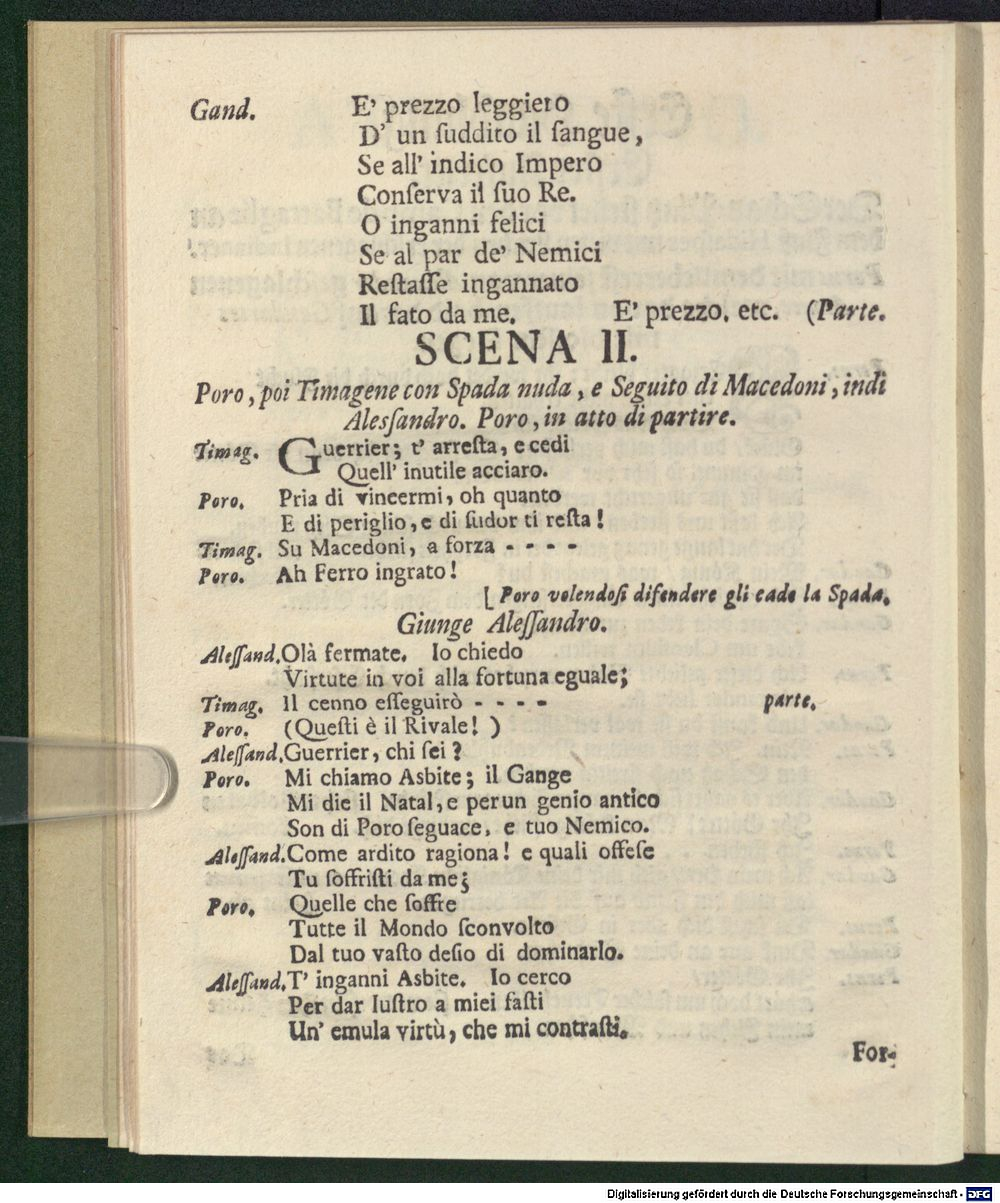 Gand. E' prezzo leggiero
D' un ſuddito il ſangue,
Se all' indico Impero
Conſerva il ſuo Re.
O inganni felici
Se al par de' Nemici
Reſtaſſe ingannato
Il fato da me. E' prezzo. etc. (Parte.
SCENA II.
Poro, poi Timagene con Spada nuda, e Seguito di Macedoni, indi
Aleſſandro. Poro, in atto di partire.
Timag. Guerrier; t' arreſta, e cedi
Quell' inutile acciaro.
Poro. Pria di vincermi, oh quanto
E di periglio, e di ſudor ti reſta!
Timag. Su Macedoni, a forza - - - -
Poro. Ah Ferro ingrato!
[ Poro volendoſi difendere gli cade la Spada.
Giunge Aleſſandro.
Aleſſand. Olà fermate. Io chiedo
Virtute in voi alla fortuna eguale;
Timag. Il cenno eſſeguirò - - - - parte.
Poro. (Queſti è il Rivale! )
Aleſſand. Guerrier, chi ſei?
Poro. Mi chiamo Asbite; il Gange
Mi die il Natal, e perun genio antico
Son di Poro ſeguace, e tuo Nemico.
Aleſſand. Come ardito ragiona! e quali offeſe
Tu ſoffriſti da me;
Poro. Quelle che ſoffre
Tutte il Mondo ſconvolto
Dal tuo vaſto deſio di dominarlo.
Aleſſand. T' inganni Asbite. Io cerco
Per dar luſtro a miei faſti
Un' emula virtù, che mi contraſti.
For-
Digitalisierung gefördert durch die Deutsche Forschungsgemeinschaft - DFG